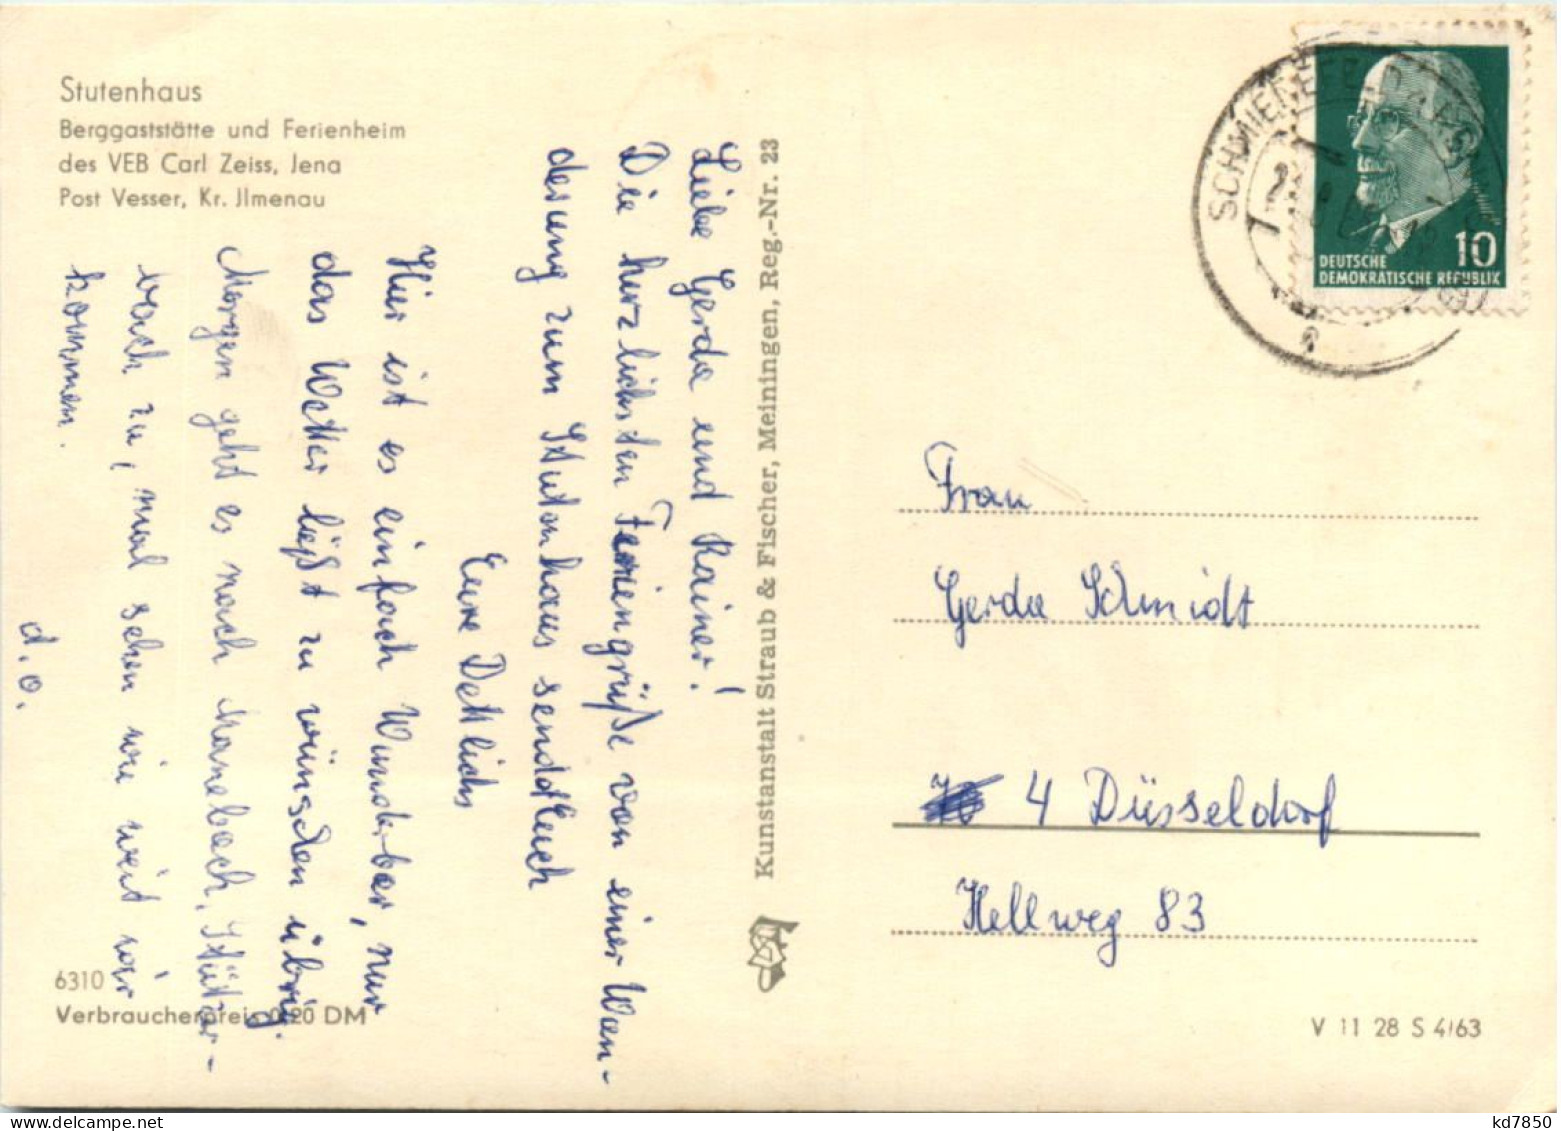 Stutenhaus
Berggaststätte und Ferienheim
des VEB Carl Zeiss, Jena
Post Vesser, Kr. Jlmenau
Liebe Gerda und Rainer!
Die herzlichsten Feriengrüße von einer Wan-
derung zum Stutenhaus sendet Euch
Eure Dettlichs
Hier ist es einfach Wunderbar, nur
das Wetter läßt zu wünschen übrig.
Morgen geht es nach Manebach, Stützer-
bach zu, mal sehen wie weit wir
kommen.
d. o.
6310
Verbraucherpreis 0,20 DM
Kunstanstalt Straub & Fischer, Meiningen, Reg.-Nr. 23
SCHMIEDEFELD
10
DEUTSCHE
DEMOKRATISCHE REPUBLIK
Frau
Gerda Schmidt
4 Düsseldorf
Hellweg 83
V 11 28 S 4/63
kd7850